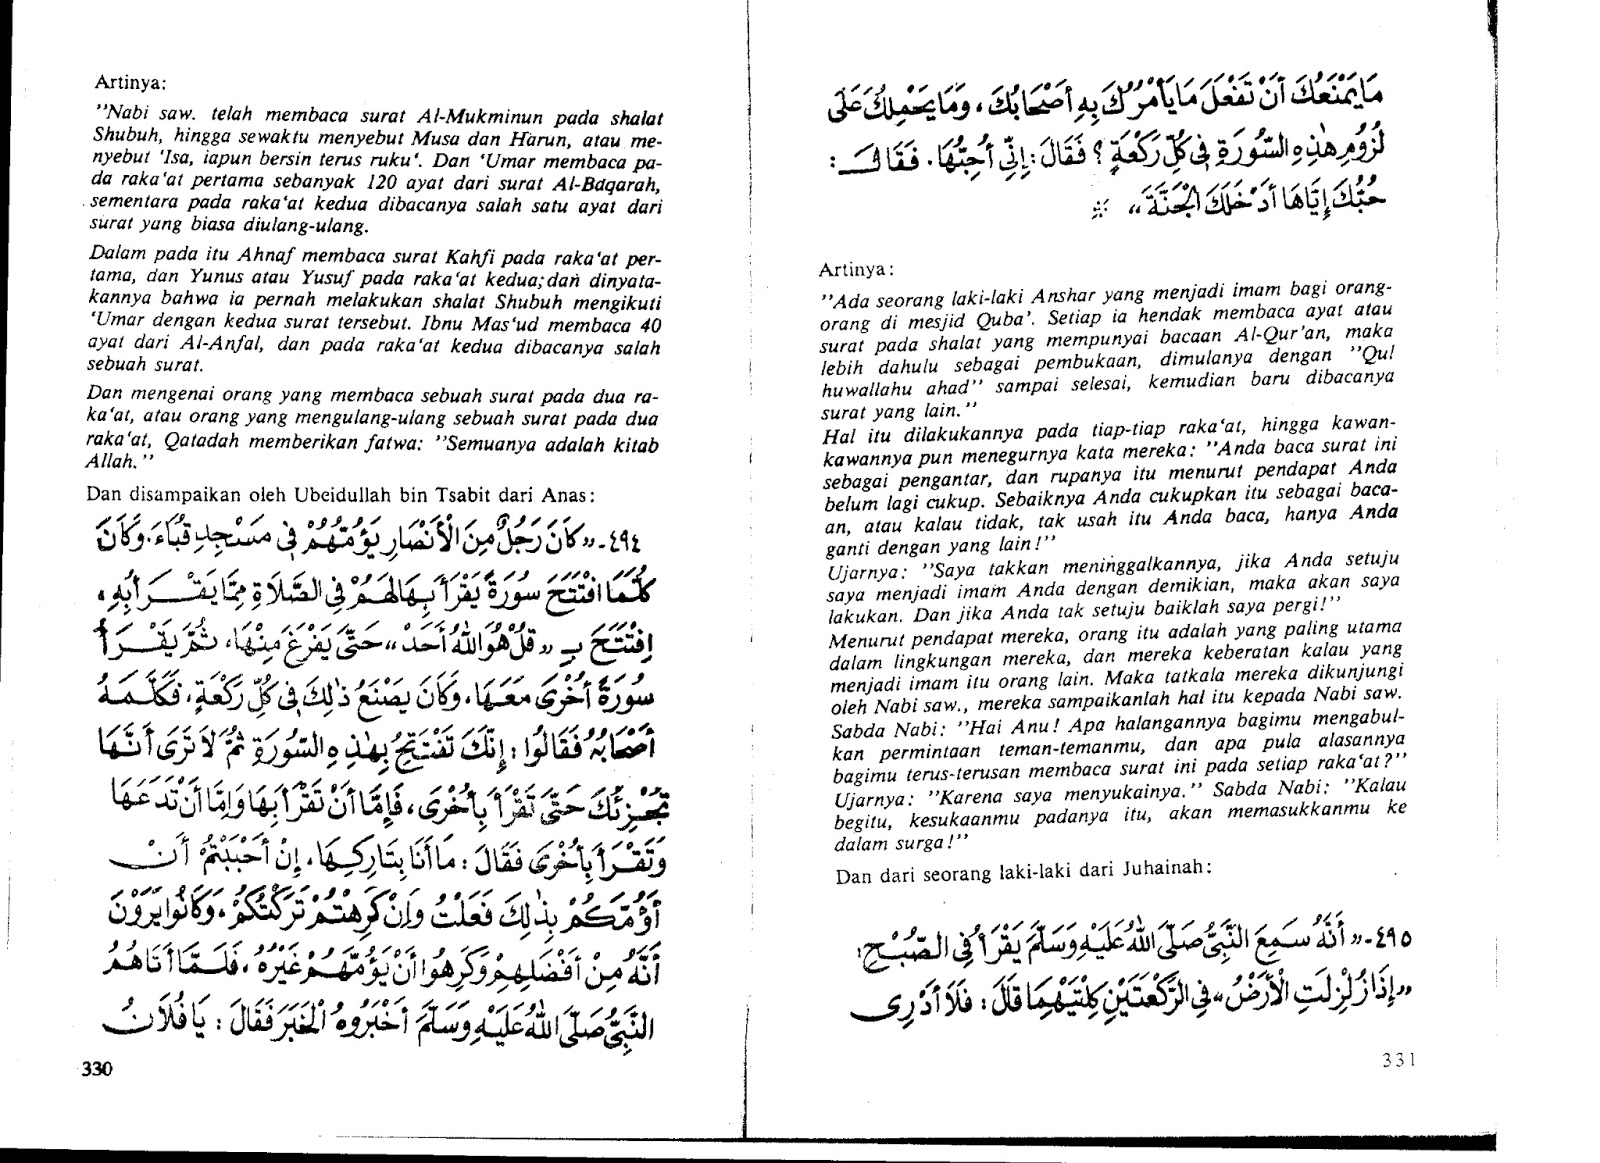 Artinya:
"Nabi saw. telah membaca surat Al-Mukminun pada shalat
Shubuh, hingga sewaktu menyebut Musa dan Harun, atau me-
nyebut 'Isa, iapun bersin terus ruku'. Dan 'Umar membaca pa-
da raka'at pertama sebanyak 120 ayat dari surat Al-Baqarah,
sementara pada raka'at kedua dibacanya salah satu ayat dari
surat yang biasa diulang-ulang.
Dalam pada itu Ahnaf membaca surat Kahfi pada raka'at per-
tama, dan Yunus atau Yusuf pada raka'at kedua; dan dinyata-
kannya bahwa ia pernah melakukan shalat Shubuh mengikuti
'Umar dengan kedua surat tersebut. Ibnu Mas'ud membaca 40
ayat dari Al-Anfal, dan pada raka'at kedua dibacanya salah
sebuah surat.
Dan mengenai orang yang membaca sebuah surat pada dua ra-
ka'at, atau orang yang mengulang-ulang sebuah surat pada dua
raka'at, Qatadah memberikan fatwa: "Semuanya adalah kitab
Allah."
Dan disampaikan oleh Ubeidullah bin Tsabit dari Anas:
٤٩٤- «كَانَ رَجُلٌ مِنَ الْأَنْصَارِ يَؤُمُّهُمْ فِي مَسْجِدِ قُبَاءَ. وَكَانَ
كُلَّمَا افْتَتَحَ سُورَةً يَقْرَأُ بِهَا لَهُمْ فِي الصَّلَاةِ مِمَّا يَقْرَأُ بِهِ،
اِفْتَتَحَ بِـ «قُلْ هُوَ اللّٰهُ أَحَدٌ» حَتَّى يَفْرَغَ مِنْهَا، ثُمَّ يَقْرَأُ
سُورَةً أُخْرَى مَعَهَا، وَكَانَ يَصْنَعُ ذٰلِكَ فِي كُلِّ رَكْعَةٍ، فَكَلَّمَهُ
أَصْحَابُهُ فَقَالُوا: إِنَّكَ تَفْتَتِحُ بِهٰذِهِ السُّورَةِ ثُمَّ لَا تَرَى أَنَّهَا
تُجْزِئُكَ حَتَّى تَقْرَأَ بِأُخْرَى، فَإِمَّا أَنْ تَقْرَأَ بِهَا وَإِمَّا أَنْ تَدَعَهَا
وَتَقْرَأَ بِأُخْرَى فَقَالَ: مَا أَنَا بِتَارِكِهَا، إِنْ أَحْبَبْتُمْ أَنْ
أَؤُمَّكُمْ بِذٰلِكَ فَعَلْتُ وَإِنْ كَرِهْتُمْ تَرَكْتُكُمْ، وَكَانُوا يَرَوْنَ
أَنَّهُ مِنْ أَفْضَلِهِمْ وَكَرِهُوا أَنْ يَؤُمَّهُمْ غَيْرُهُ، فَلَمَّا أَتَاهُمُ
النَّبِيُّ صَلَّى اللّٰهُ عَلَيْهِ وَسَلَّمَ أَخْبَرُوهُ الْخَبَرَ فَقَالَ: يَا فُلَانُ
330
مَا يَمْنَعُكَ أَنْ تَفْعَلَ مَا يَأْمُرُكَ بِهِ أَصْحَابُكَ، وَمَا يَحْمِلُكَ عَلَى
لُزُومِ هٰذِهِ السُّورَةِ فِي كُلِّ رَكْعَةٍ؟ فَقَالَ: إِنِّي أُحِبُّهَا. فَقَالَ:
حُبُّكَ إِيَّاهَا أَدْخَلَكَ الْجَنَّةَ»
Artinya:
"Ada seorang laki-laki Anshar yang menjadi imam bagi orang-
orang di mesjid Quba'. Setiap ia hendak membaca ayat atau
surat pada shalat yang mempunyai bacaan Al-Qur'an, maka
lebih dahulu sebagai pembukaan, dimulanya dengan "Qul
huwallahu ahad" sampai selesai, kemudian baru dibacanya
surat yang lain."
Hal itu dilakukannya pada tiap-tiap raka'at, hingga kawan-
kawannya pun menegurnya kata mereka: "Anda baca surat ini
sebagai pengantar, dan rupanya itu menurut pendapat Anda
belum lagi cukup. Sebaiknya Anda cukupkan itu sebagai baca-
an, atau kalau tidak, tak usah itu Anda baca, hanya Anda
ganti dengan yang lain!"
Ujarnya: "Saya takkan meninggalkannya, jika Anda setuju
saya menjadi imam Anda dengan demikian, maka akan saya
lakukan. Dan jika Anda tak setuju baiklah saya pergi!"
Menurut pendapat mereka, orang itu adalah yang paling utama
dalam lingkungan mereka, dan mereka keberatan kalau yang
menjadi imam itu orang lain. Maka tatkala mereka dikunjungi
oleh Nabi saw., mereka sampaikanlah hal itu kepada Nabi saw.
Sabda Nabi: "Hai Anu! Apa halangannya bagimu mengabul-
kan permintaan teman-temanmu, dan apa pula alasannya
bagimu terus-terusan membaca surat ini pada setiap raka'at?"
Ujarnya: "Karena saya menyukainya." Sabda Nabi: "Kalau
begitu, kesukaanmu padanya itu, akan memasukkanmu ke
dalam surga!"
Dan dari seorang laki-laki dari Juhainah:
٤٩٥- «أَنَّهُ سَمِعَ النَّبِيَّ صَلَّى اللّٰهُ عَلَيْهِ وَسَلَّمَ يَقْرَأُ فِي الصُّبْحِ:
«إِذَا زُلْزِلَتِ الْأَرْضُ» فِي الرَّكْعَتَيْنِ كِلْتَيْهِمَا قَالَ: فَلَا أَدْرِى
331